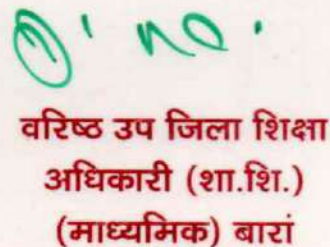 वरिष्ठ उप जिला शिक्षा
अधिकारी (शा.शि.)
(माध्यमिक) बारां